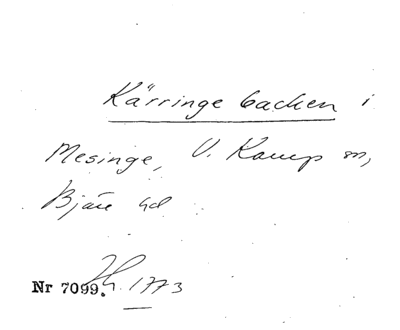 Kärringe backen i
Mesinge, V. Karup sn,
Bjäre hd
Nr 7099. 1773